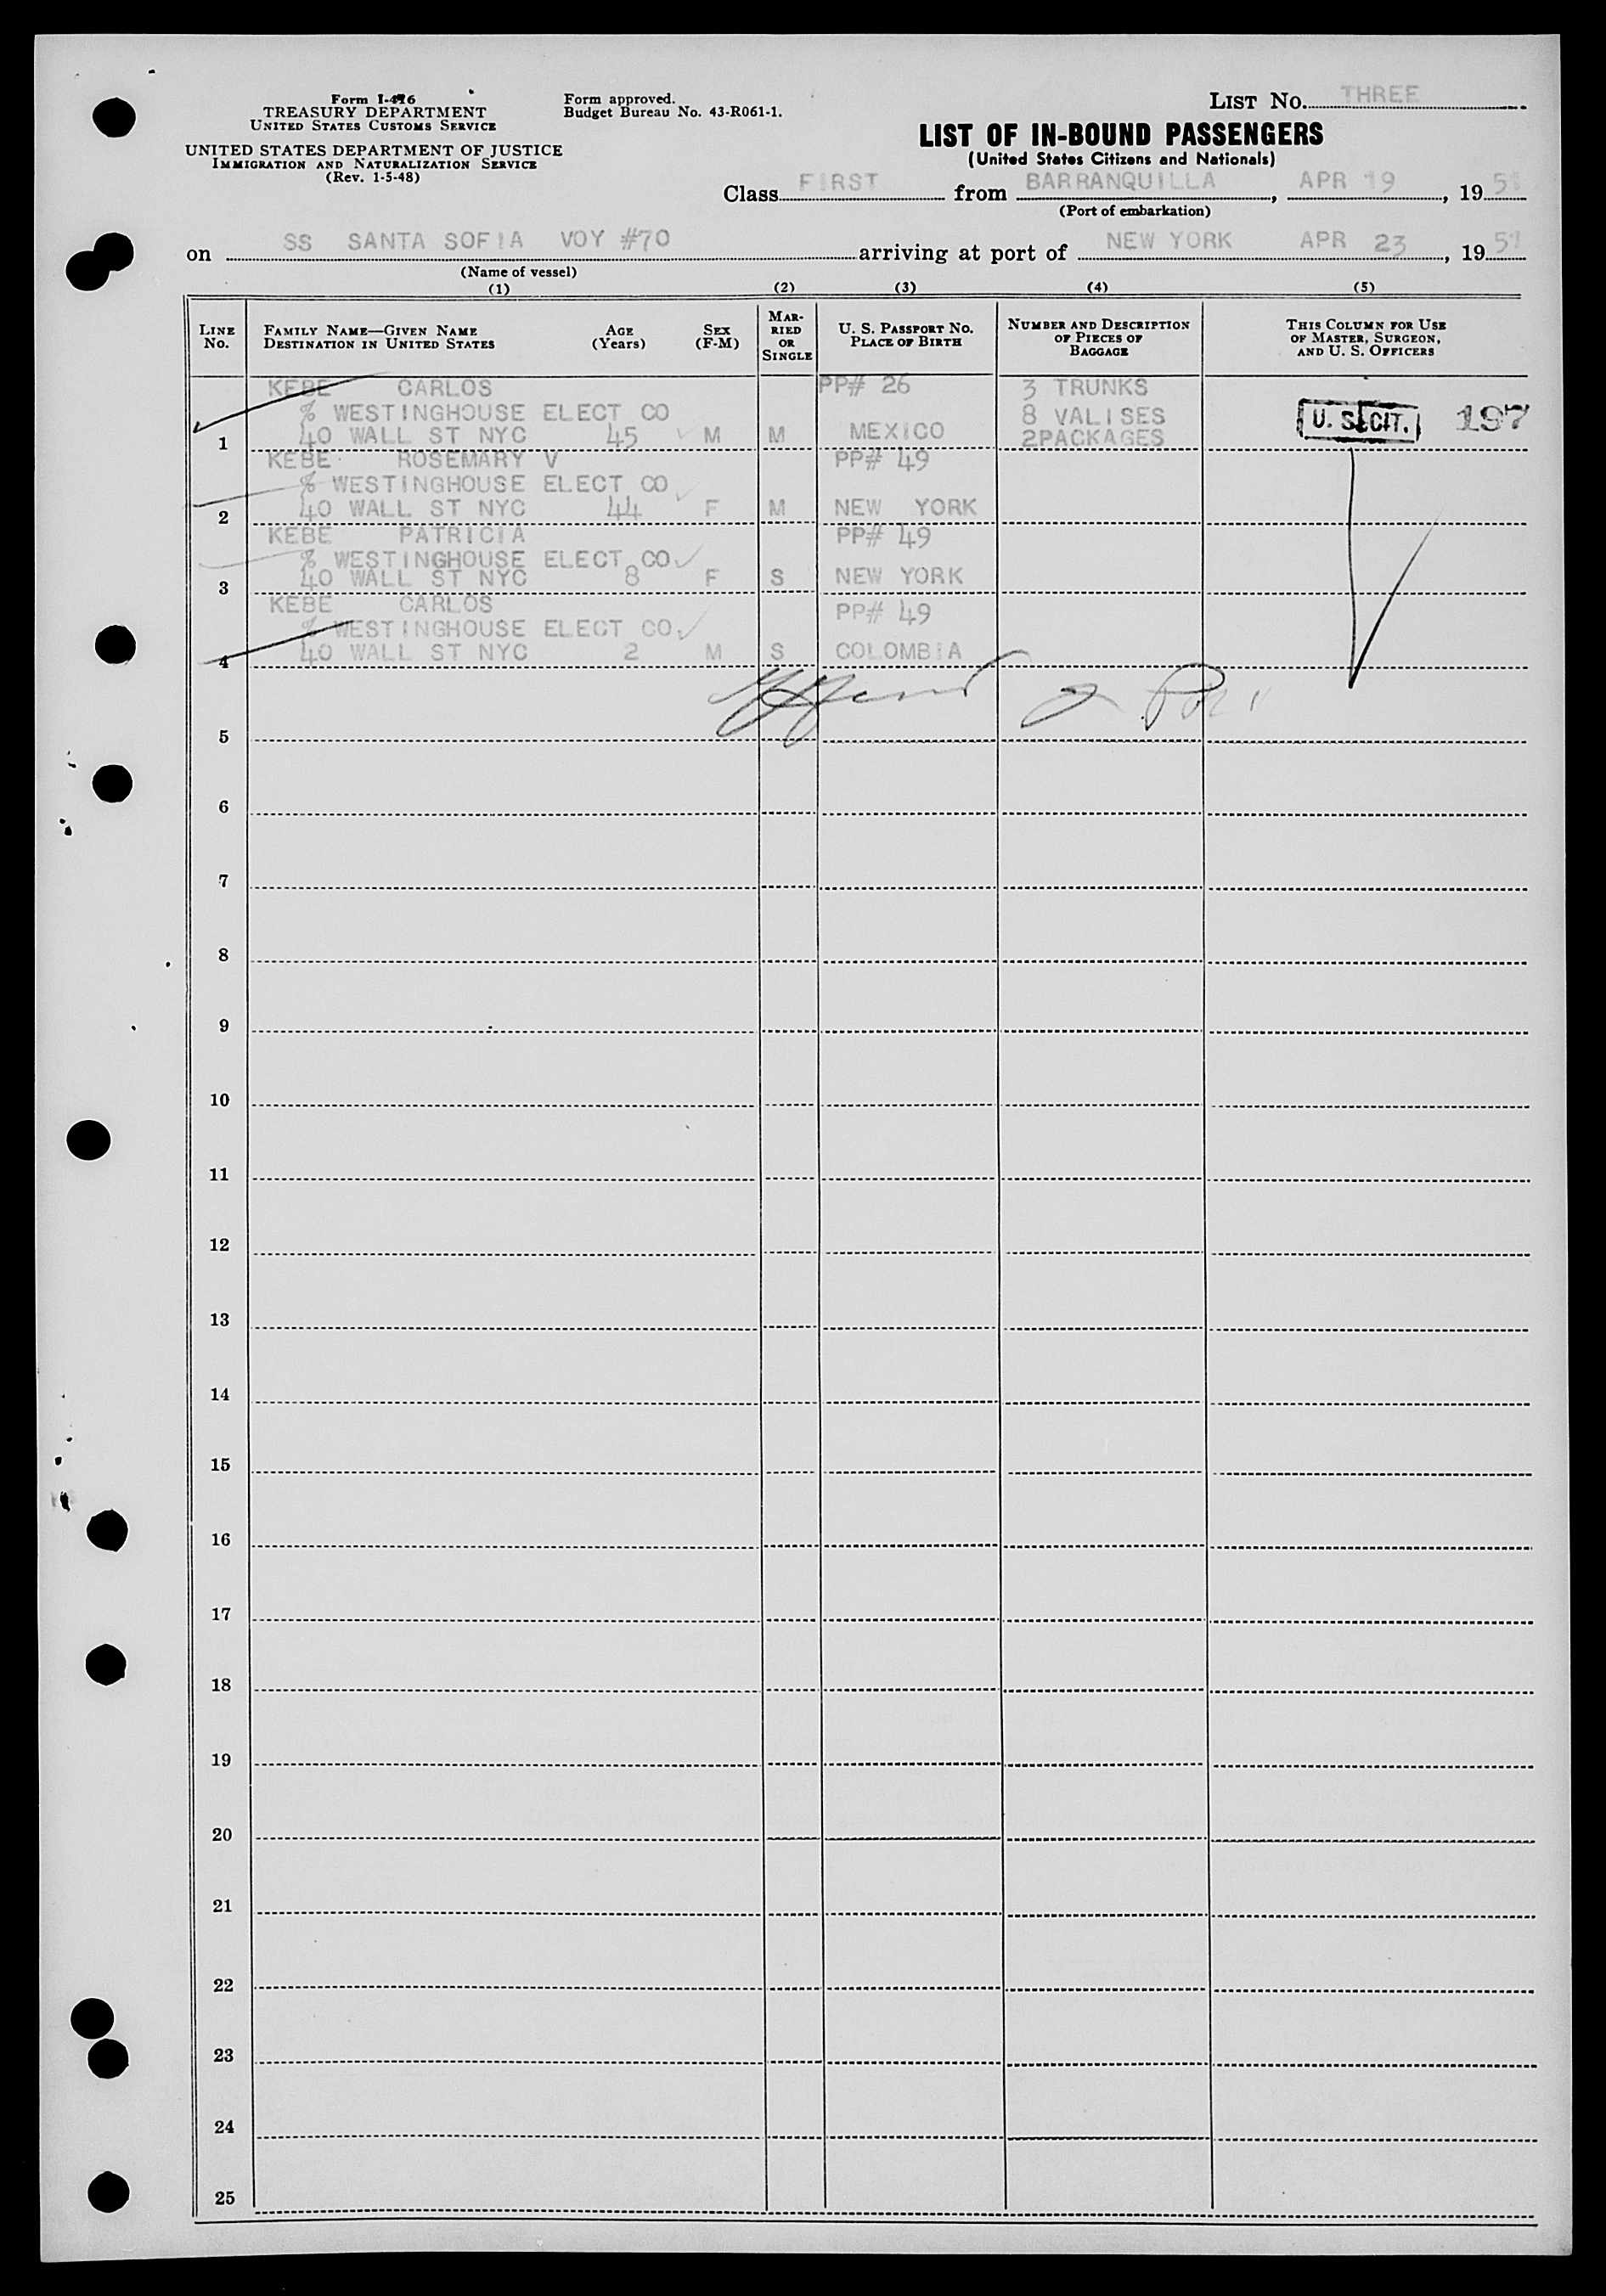 Form I-416
TREASURY DEPARTMENT
UNITED STATES CUSTOMS SERVICE
UNITED STATES DEPARTMENT OF JUSTICE
IMMIGRATION AND NATURALIZATION SERVICE
(Rev. 1-5-48)
Form approved.
Budget Bureau No. 43-R061-1.
LIST NO. THREE
LIST OF IN-BOUND PASSENGERS
(United States Citizens and Nationals)
Class FIRST from BARRANQUILLA, APR 19, 1951
(Port of embarkation)
on SS SANTA SOFIA VOY #70 arriving at port of NEW YORK APR 23, 1951
(Name of vessel)
(1) (2) (3) (4) (5)
LINE No. FAMILY NAME—GIVEN NAME DESTINATION IN UNITED STATES AGE (Years) SEX (F-M) MARRIED OR SINGLE U. S. PASSPORT NO. PLACE OF BIRTH NUMBER AND DESCRIPTION OF PIECES OF BAGGAGE THIS COLUMN FOR USE OF MASTER, SURGEON, AND U. S. OFFICERS
KEBE CARLOS PP# 26 3 TRUNKS
% WESTINGHOUSE ELECT CO 8 VALISES U. S. CIT. 197
1 40 WALL ST NYC 45 M M MEXICO 2PACKAGES
KEBE ROSEMARY V PP# 49
% WESTINGHOUSE ELECT CO
2 40 WALL ST NYC 44 F M NEW YORK
KEBE PATRICIA PP# 49
% WESTINGHOUSE ELECT CO
3 40 WALL ST NYC 8 F S NEW YORK
KEBE CARLOS PP# 49
% WESTINGHOUSE ELECT CO
4 40 WALL ST NYC 2 M S COLOMBIA
5
6
7
8
9
10
11
12
13
14
15
16
17
18
19
20
21
22
23
24
25